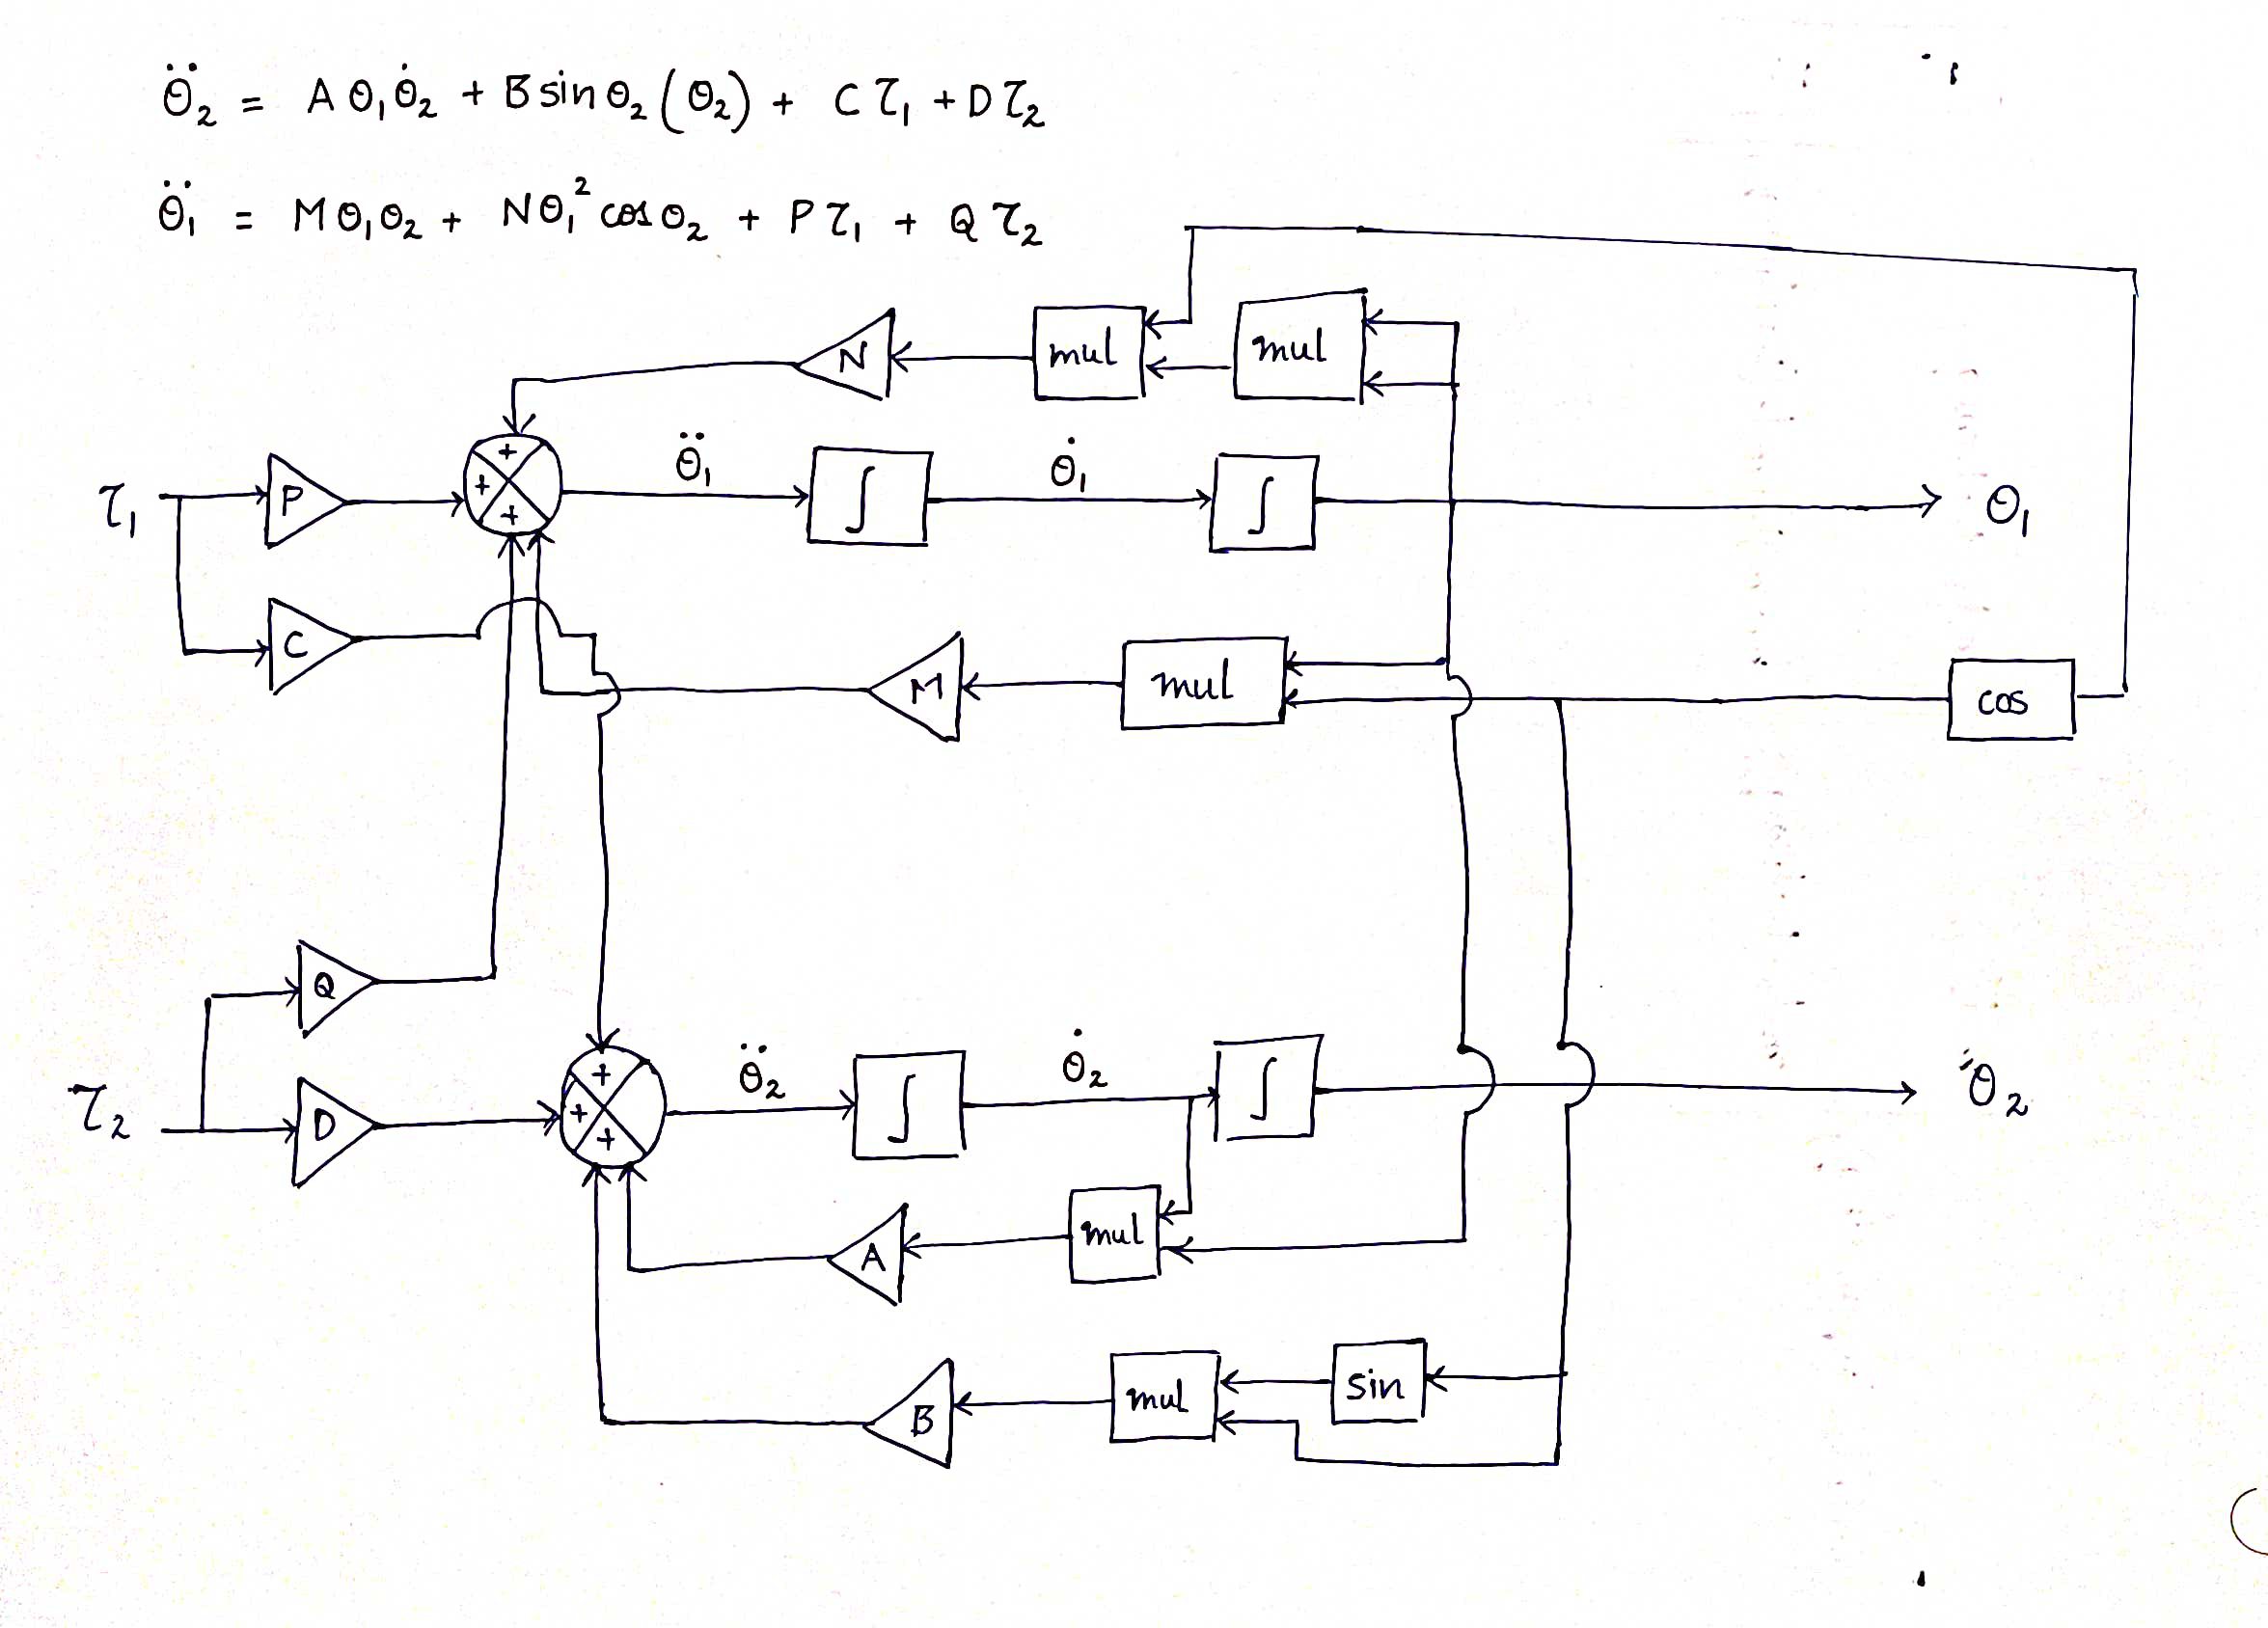 θ̈₂ = A θ₁θ̇₂ + B sin θ₂ (θ₂) + C τ₁ + D τ₂
θ̈₁ = M θ₁θ₂ + N θ₁² cos θ₂ + P τ₁ + Q τ₂
N mul mul
τ₁ P + + + θ̈₁ ∫ θ̇₁ ∫ θ₁
C M mul cos
Q
τ₂ D + + + θ̈₂ ∫ θ̇₂ ∫ θ₂
A mul
B mul sin